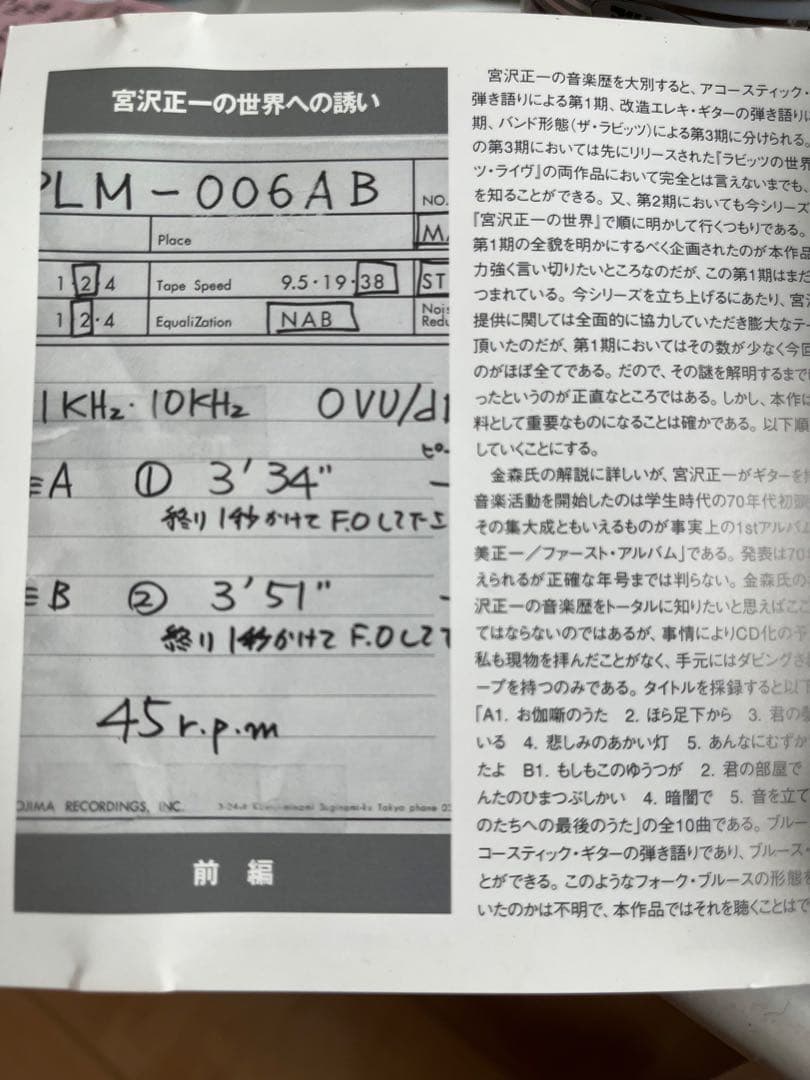 宮沢正一の世界への誘い
PLM-006AB
NO.
Place
1 2 4 Tape Speed 9.5・19・38 ST
1 2・4 EqualiZation NAB
1KHz・10KHz 0VU/
A ① 3'34"
終り1秒かけてF.O.して
B ② 3'51"
終り1秒かけてF.O.して
45 r.p.m
OJIMA RECORDINGS, INC.
前 編
宮沢正一の音楽歴を大別すると、アコースティック・
弾き語りによる第1期、改造エレキ・ギターの弾き語りに
期、バンド形態(ザ・ラビッツ)による第3期に分けられる。
の第3期においては先にリリースされた『ラビッツの世界
ツ・ライヴ』の両作品において完全とは言えないまでも、
を知ることができる。又、第2期においても今シリーズ
『宮沢正一の世界』で順に明かして行くつもりである。
第1期の全貌を明かにするべく企画されたのが本作品
力強く言い切りたいところなのだが、この第1期はまだ
つまれている。今シリーズを立ち上げるにあたり、宮沢
提供に関しては全面的に協力していただき膨大なテー
頂いたのだが、第1期においてはその数が少なく今回
のがほぼ全てである。だので、その謎を解明するまで
ったというのが正直なところではある。しかし、本作は
料として重要なものになることは確かである。以下順
していくことにする。
金森氏の解説に詳しいが、宮沢正一がギターを
音楽活動を開始したのは学生時代の70年代初頭
その集大成ともいえるものが事実上の1stアルバム
美正一/ファースト・アルバム」である。発表は70
えられるが正確な年号までは判らない。金森氏の
沢正一の音楽歴をトータルに知りたいと思えばここ
てはならないのではあるが、事情によりCD化の予
私も現物を拝んだことがなく、手元にはダビングさ
ープを持つのみである。タイトルを採録すると以下
「A1. お伽噺のうた 2. ほら足下から 3. 君の
いる 4. 悲しみのあかい灯 5. あんなにむずか
たよ B1. もしもこのゆうつが 2. 君の部屋で
んたのひまつぶしかい 4. 暗闇で 5. 音を立て
のたちへの最後のうた」の全10曲である。ブルー
コースティック・ギターの弾き語りであり、ブルース・
とができる。このようなフォーク・ブルースの形態を
いたのかは不明で、本作品ではそれを聴くことはで